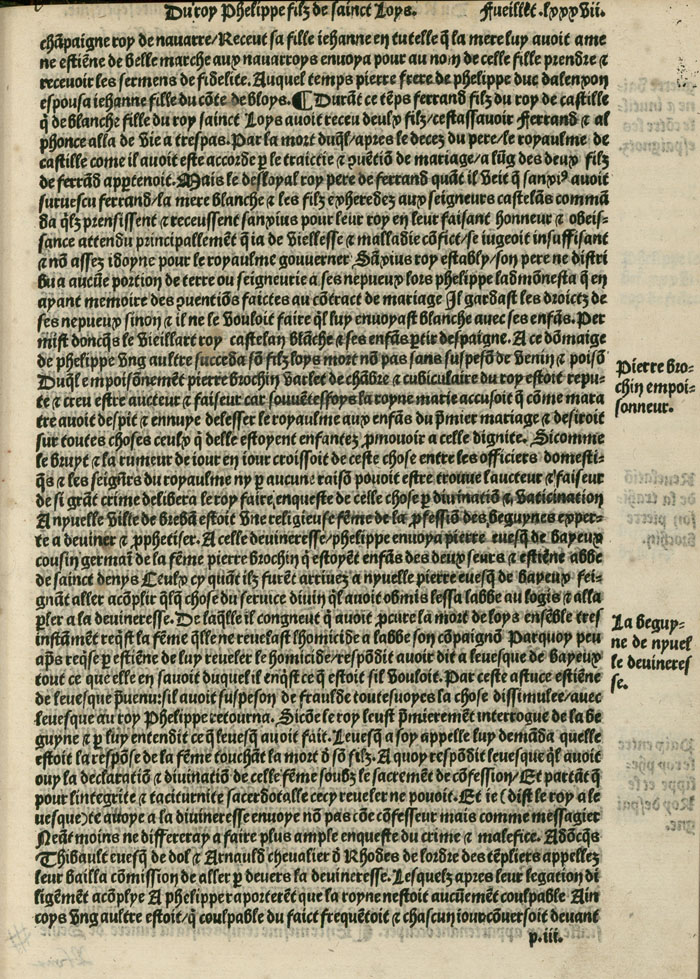 Du roy Phelippe filz de sainct Loys. Fueillet .lxxxvii.
chāpaigne roy de nauarre/Receut sa fille iehanne en tutelle q̄ la mere luy auoit ame
ne estiēne de belle marche aux nauarroys enuoya pour au nom de celle fille prendre ⁊
recevoir les sermens de fidelite. Auquel temps pierre frere de phelippe duc dalenxon
espousa iehanne fille du cōte de bloys. ¶ Durāt ce tēps ferrand filz du roy de castille
q̄ de blanche fille du roy sainct Loys auoit receu deulx filz/cestassauoir Ferrand ⁊ al
phonce alla de vie a trespas. Par la mort duq̄l/apres le decez du pere/le royaulme de
castille come il auoit este accorde p̱ le traictie ⁊ ꝯuētiō de mariage/a lūg des deux filz
de ferrād app̱tenoit. Mais le desloyal roy pere de ferrand quāt il veit q̄ sanxiꝰ auoit
suruescu ferrand/la mere blanche ⁊ les filz exheredez aux seigneurs castelās commā
da q̄lz prensissent ⁊ receussent sanxius pour leur roy en leur faisant honneur ⁊ obeis-
sance attendu principallemēt q̄ ia de viellesse ⁊ malladie cōfict/se iugeoit insuffisant
⁊ nō assez idoyne pour le royaulme gouuerner Sāxius roy estably/son pere ne distri
bua aucūe portion de terre ou seigneurie a ses nepueux lors phelippe ladmōnesta q̄ en
ayant memoire des ꝯuentiōs faictes au cōtract de mariage Il gardast les droictz de
ses nepueux sinon ⁊ il ne le vouloit faire q̄l luy enuoyast blanche auec ses enfās. Per
mist doncq̄s le vieillart roy castelan blāche ⁊ ses enfās p̱tir despaigne. A ce dōmaige
de phelippe vng aultre succeda sō filz loys mort nō pas sans suspesō de venin ⁊ poisō
Duq̄l empoisōnemēt pierre brochin varlet de chābre ⁊ cubiculaire du roy estoit repu-
te ⁊ creu estre aucteur ⁊ faiseur car souuētesfoys la royne marie accusoit q̄ cōme mara
tre auoit despit ⁊ ennuye delesser le royaulme aux enfās du p̄mier mariage ⁊ desiroit
sur toutes choses ceulx q̄ delle estoyent enfantez ꝓmouoir a celle dignite. Sicomme
le bruyt ⁊ la rumeur de iour en iour croissoit de ceste chose entre les officiers domesti-
q̄s ⁊ les seign̄rs du royaulme ny p̱ aucune raisō pouoit estre trouue laucteur ⁊ faiseur
de si grāt crime delibera le roy faire enqueste de celle chose p̱ diuinatiō ⁊ vaticination
A nyuelle ville de brebā estoit vne religieuse fēme de la ꝓfessiō des beguynes exper-
te a deuiner ⁊ ꝓphetiser. A celle deuineresse/phelippe enuoya pierre euesq̄ de bayeux
cousin germaī de la fēme pierre brochin q̄ estoyēt enfās des deux seurs ⁊ estiēne abbe
de sainct denys Ceulx cy quāt ilz furēt arriuez a nyuelle pierre euesq̄ de bayeux fei-
gnāt aller acōplir q̄lq̄ chose du seruice diuin q̄l auoit obmis lessa labbe au logis ⁊ alla
p̱ler a la deuineresse. De laq̄lle il congneut q̄ auoit ꝓcure la mort de loys ensēble tres
instāmēt req̄st la fēme q̄lle ne reuelast lhomicide a labbe son cōpaignō Parquoy peu
ap̄s req̄se p̱ estiēne de luy reueler le homicide/respōdit auoir dit a leuesque de bayeux
tout ce que elle en sauoit duquel il enq̄st ce q̄ estoit sil vouloit. Par ceste astuce estiēne
de leuesque p̄uenu: sil auoit suspeson de fraulde toutesuoyes la chose dissimulee/auec
leuesque au roy Phelippe retourna. Sicōe le roy leust p̄mieremēt interrogue de la be
guyne ⁊ p̱ luy entendit ce q̄ leuesq̄ auoit fait. Leuesq̄ a soy appelle luy demāda quelle
estoit la respōse de la fēme touchāt la mort ō sō filz. A quoy respōdit leuesque q̄l auoit
ouy la declaratiō ⁊ diuinatiō de celle fēme soubz le sacremēt de cōfession/Et partāt q̄
pour lintegrite ⁊ taciturnite sacerdotalle cecy reueler ne pouoit. Et ie (dist le roy a le
uesque) te auoye a la diuineresse enuoye nō pas cōe cōfesseur mais comme messagier
Neāt moins ne differeray a faire plus ample enqueste du crime ⁊ malefice. Adōcq̄s
Thibault euesq̄ de dol ⁊ Arnauld chevalier ō Rhodes de lordre des tēpliers appellez
leur bailla cōmission de aller p̱ deuers la deuineresse. Lesquelz apres leur legation di
ligēmēt acōplye A phelippe raporterēt que la royne nestoit aucūemēt coulpable Ain
coys vng aultre estoit/q̄ coulpable du faict frequētoit ⁊ chascun iour cōuersoit deuant
p.iii.
Pierre bro-
chin empoi-
sonneur.
La beguy-
ne de nyuel
le deuineres
se.